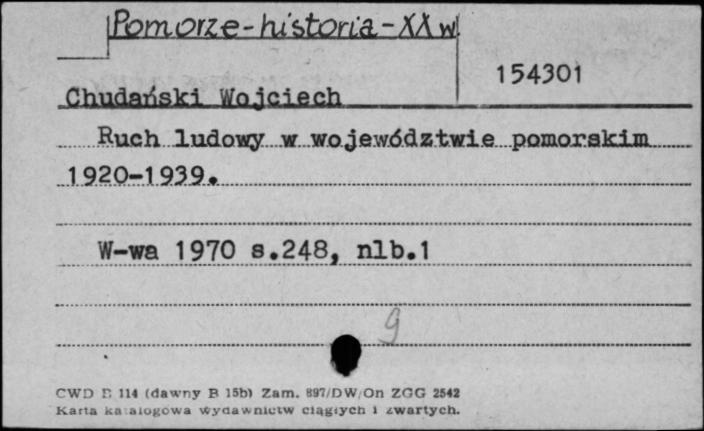 Pomorze-historia-XX w
154301
Chudański Wojciech
Ruch ludowy w województwie pomorskim
1920-1939.
W-wa 1970 s.248, nlb.1
9
CWD B 114 (dawny B 15b) Zam. 897/DW/On ZGG 2542
Karta katalogowa wydawnictw ciągłych i zwartych.